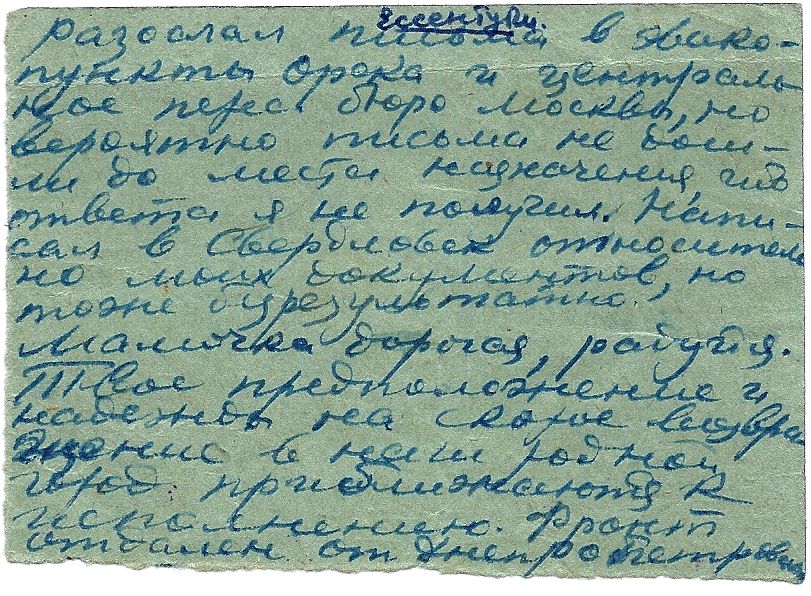 Ессентуки.
разослал письма в эвако-
пункты Орска и централь
ное перес бюро Москвы, но
вероятно письма не дош-
ли до места назначения, ибо
ответа я не получил. Напи-
сал в Свердловск относитель
но моих документов, но
тоже безрезультатно.
Мамочка дорогая, радуйся.
Твое предположение и
надежды на скорое возвра
щение в наш родной
город приближаются к
исполнению. Фронт
отдален от Днепропетровска